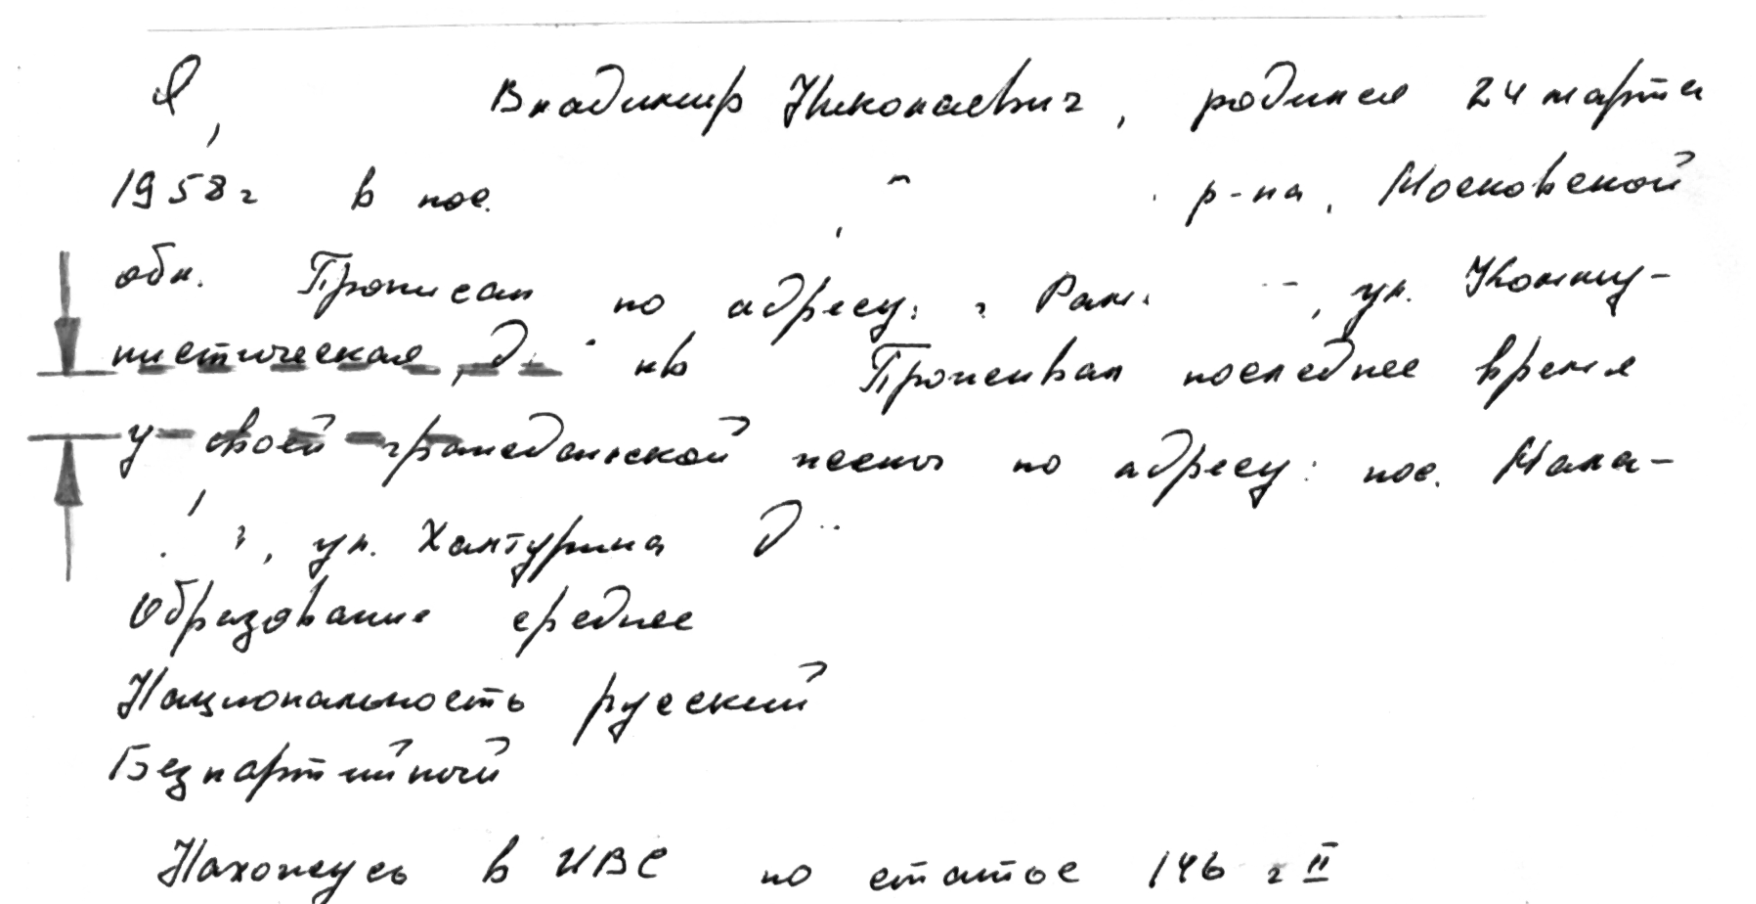 Я, Владимир Николаевич, родился 24 марта
1958г в пос. р-на, Московской
обл. Прописан по адресу: г Рам. , ул. Комму-
нистическая, д. кв Проживал последнее время
у своей гражданской жены по адресу: пос. Мала-
, ул. Халтурина д
Образование среднее
Национальность русский
Безпартийный
Нахожусь в ИВС по статье 146 ч II